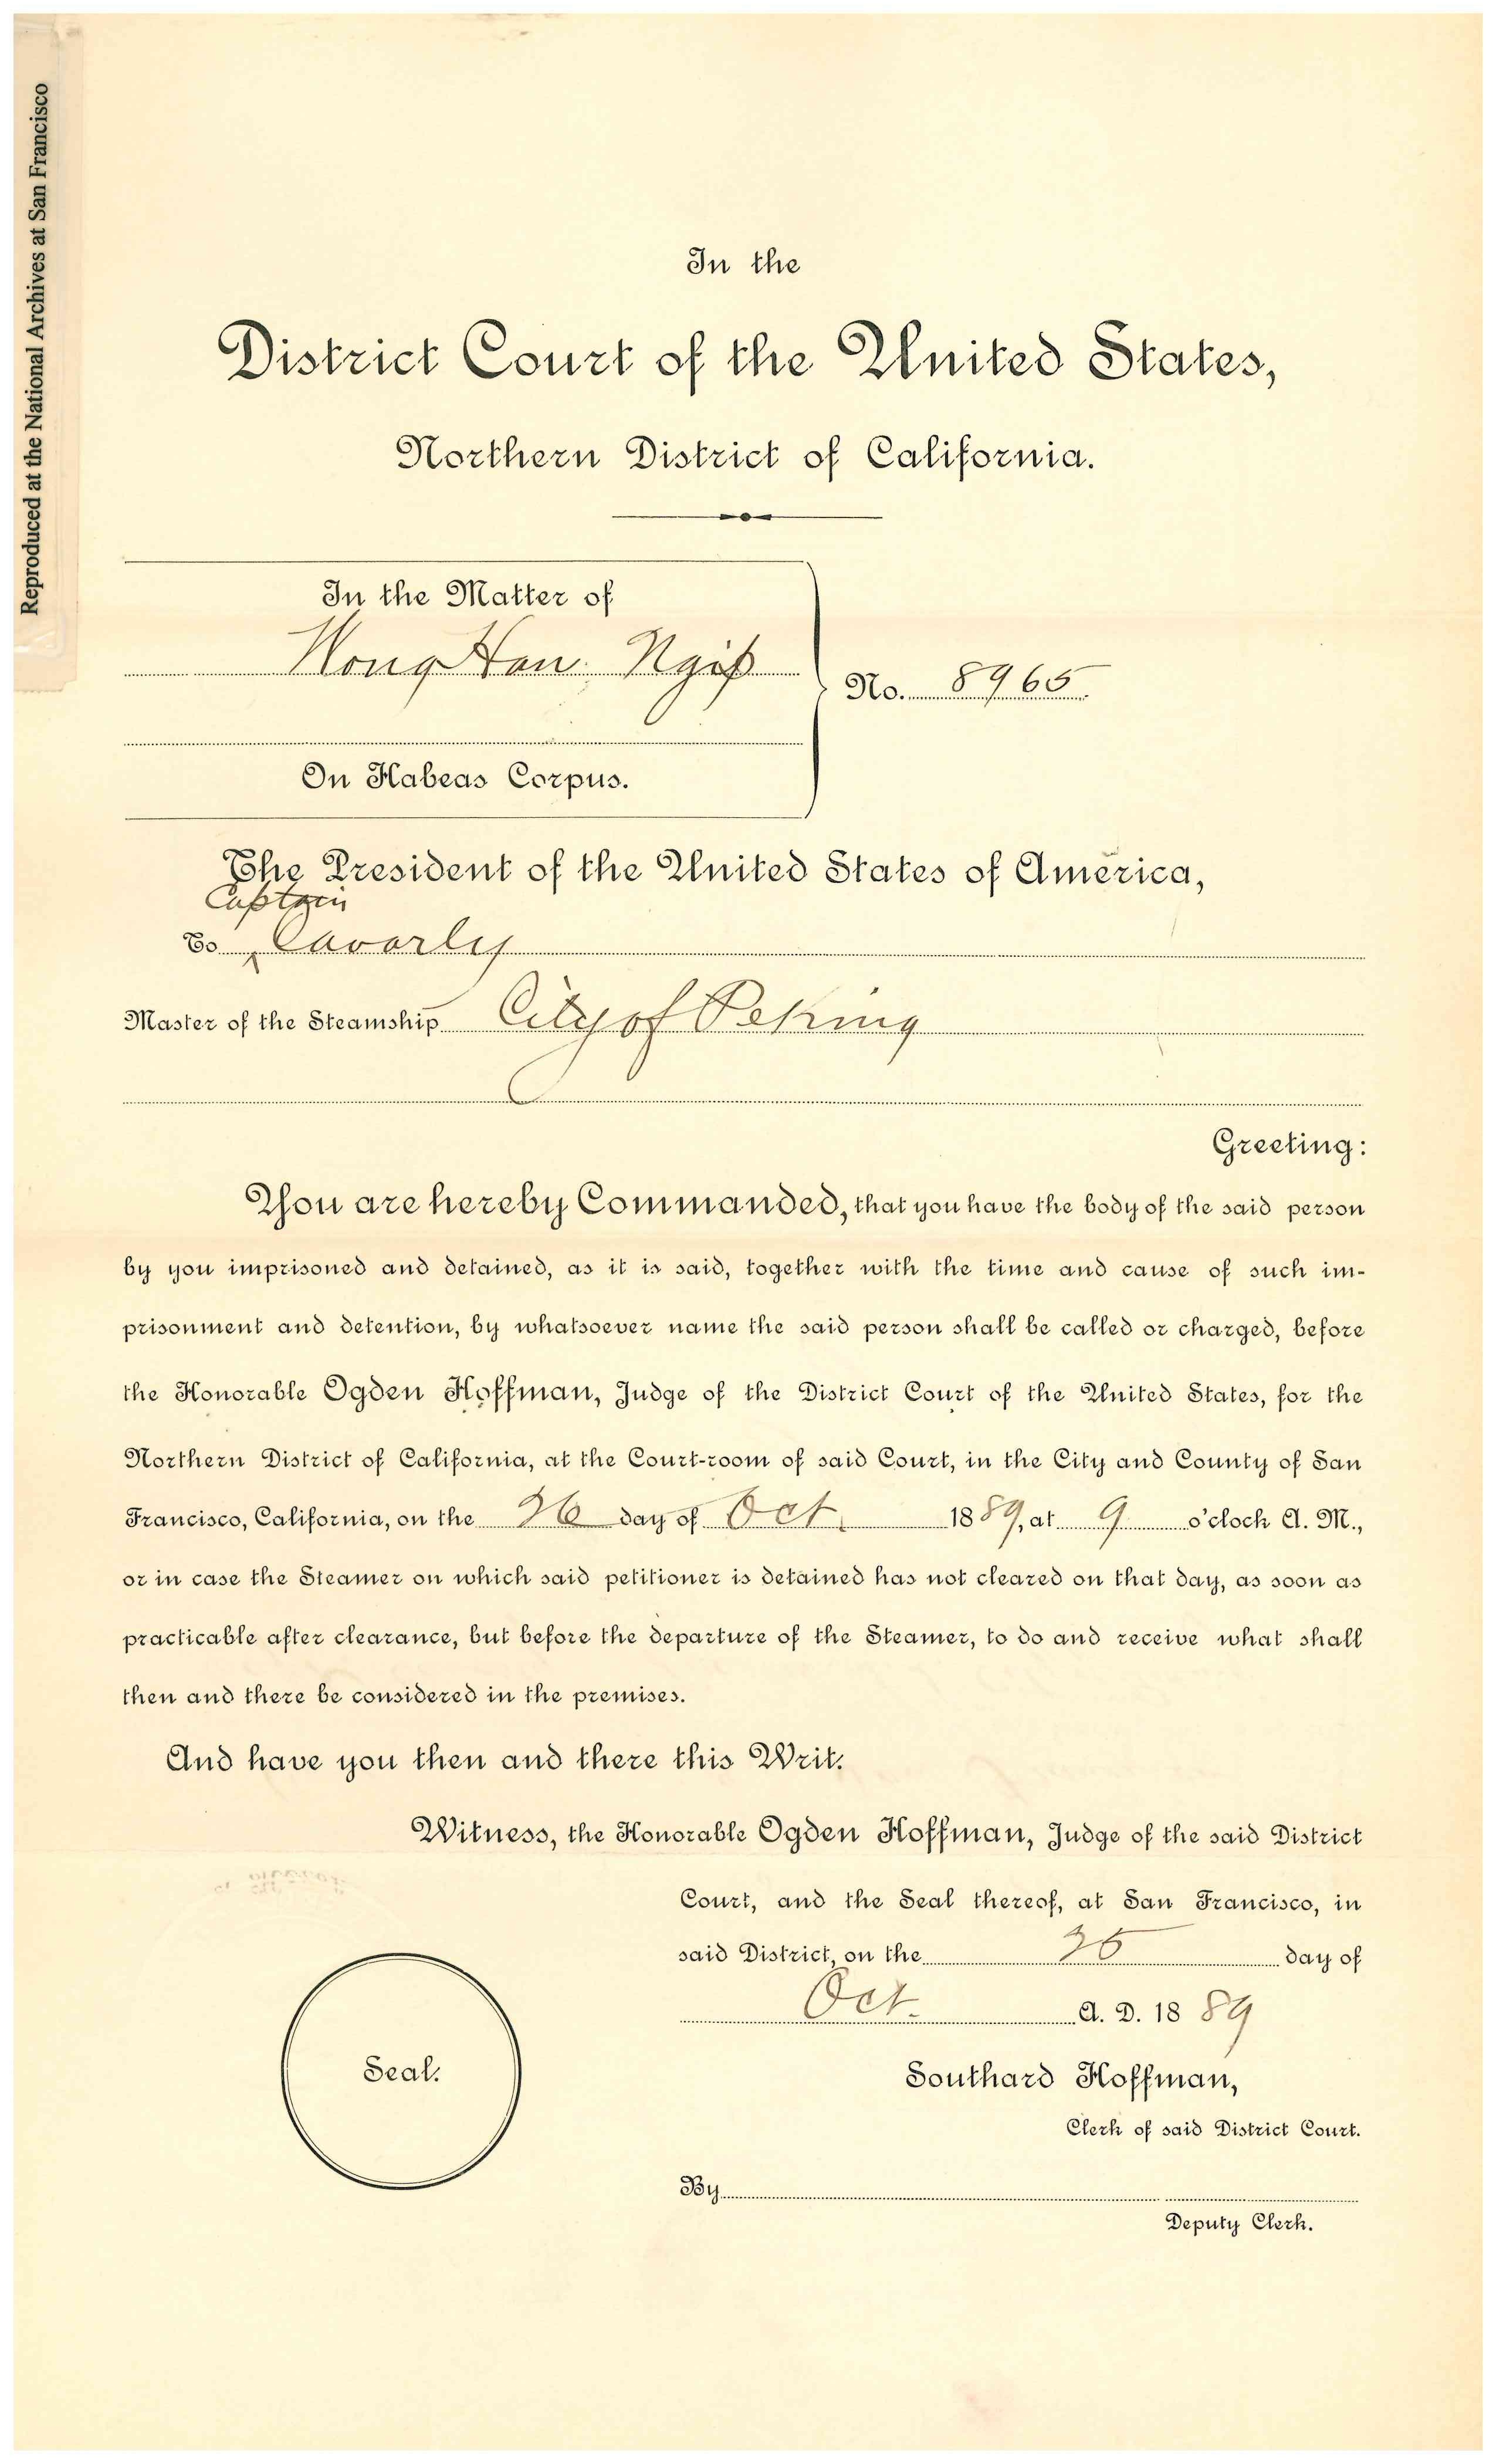 Reproduced at the National Archives at San Francisco
In the
District Court of the United States,
Northern District of California.
In the Matter of
Wong Han Ngip
No. 8965.
On Habeas Corpus.
The President of the United States of America,
Captain
To Cavarly
Master of the Steamship City of Peking
Greeting:
You are hereby Commanded, that you have the body of the said person
by you imprisoned and detained, as it is said, together with the time and cause of such im-
prisonment and detention, by whatsoever name the said person shall be called or charged, before
the Honorable Ogden Hoffman, Judge of the District Court of the United States, for the
Northern District of California, at the Court-room of said Court, in the City and County of San
Francisco, California, on the 26 day of Oct. 1889, at 9 o'clock A. M.,
or in case the Steamer on which said petitioner is detained has not cleared on that day, as soon as
practicable after clearance, but before the departure of the Steamer, to do and receive what shall
then and there be considered in the premises.
And have you then and there this Writ.
Witness, the Honorable Ogden Hoffman, Judge of the said District
Court, and the Seal thereof, at San Francisco, in
said District, on the 26 day of
Oct. A. D. 1889
Seal.
Southard Hoffman,
Clerk of said District Court.
By
Deputy Clerk.